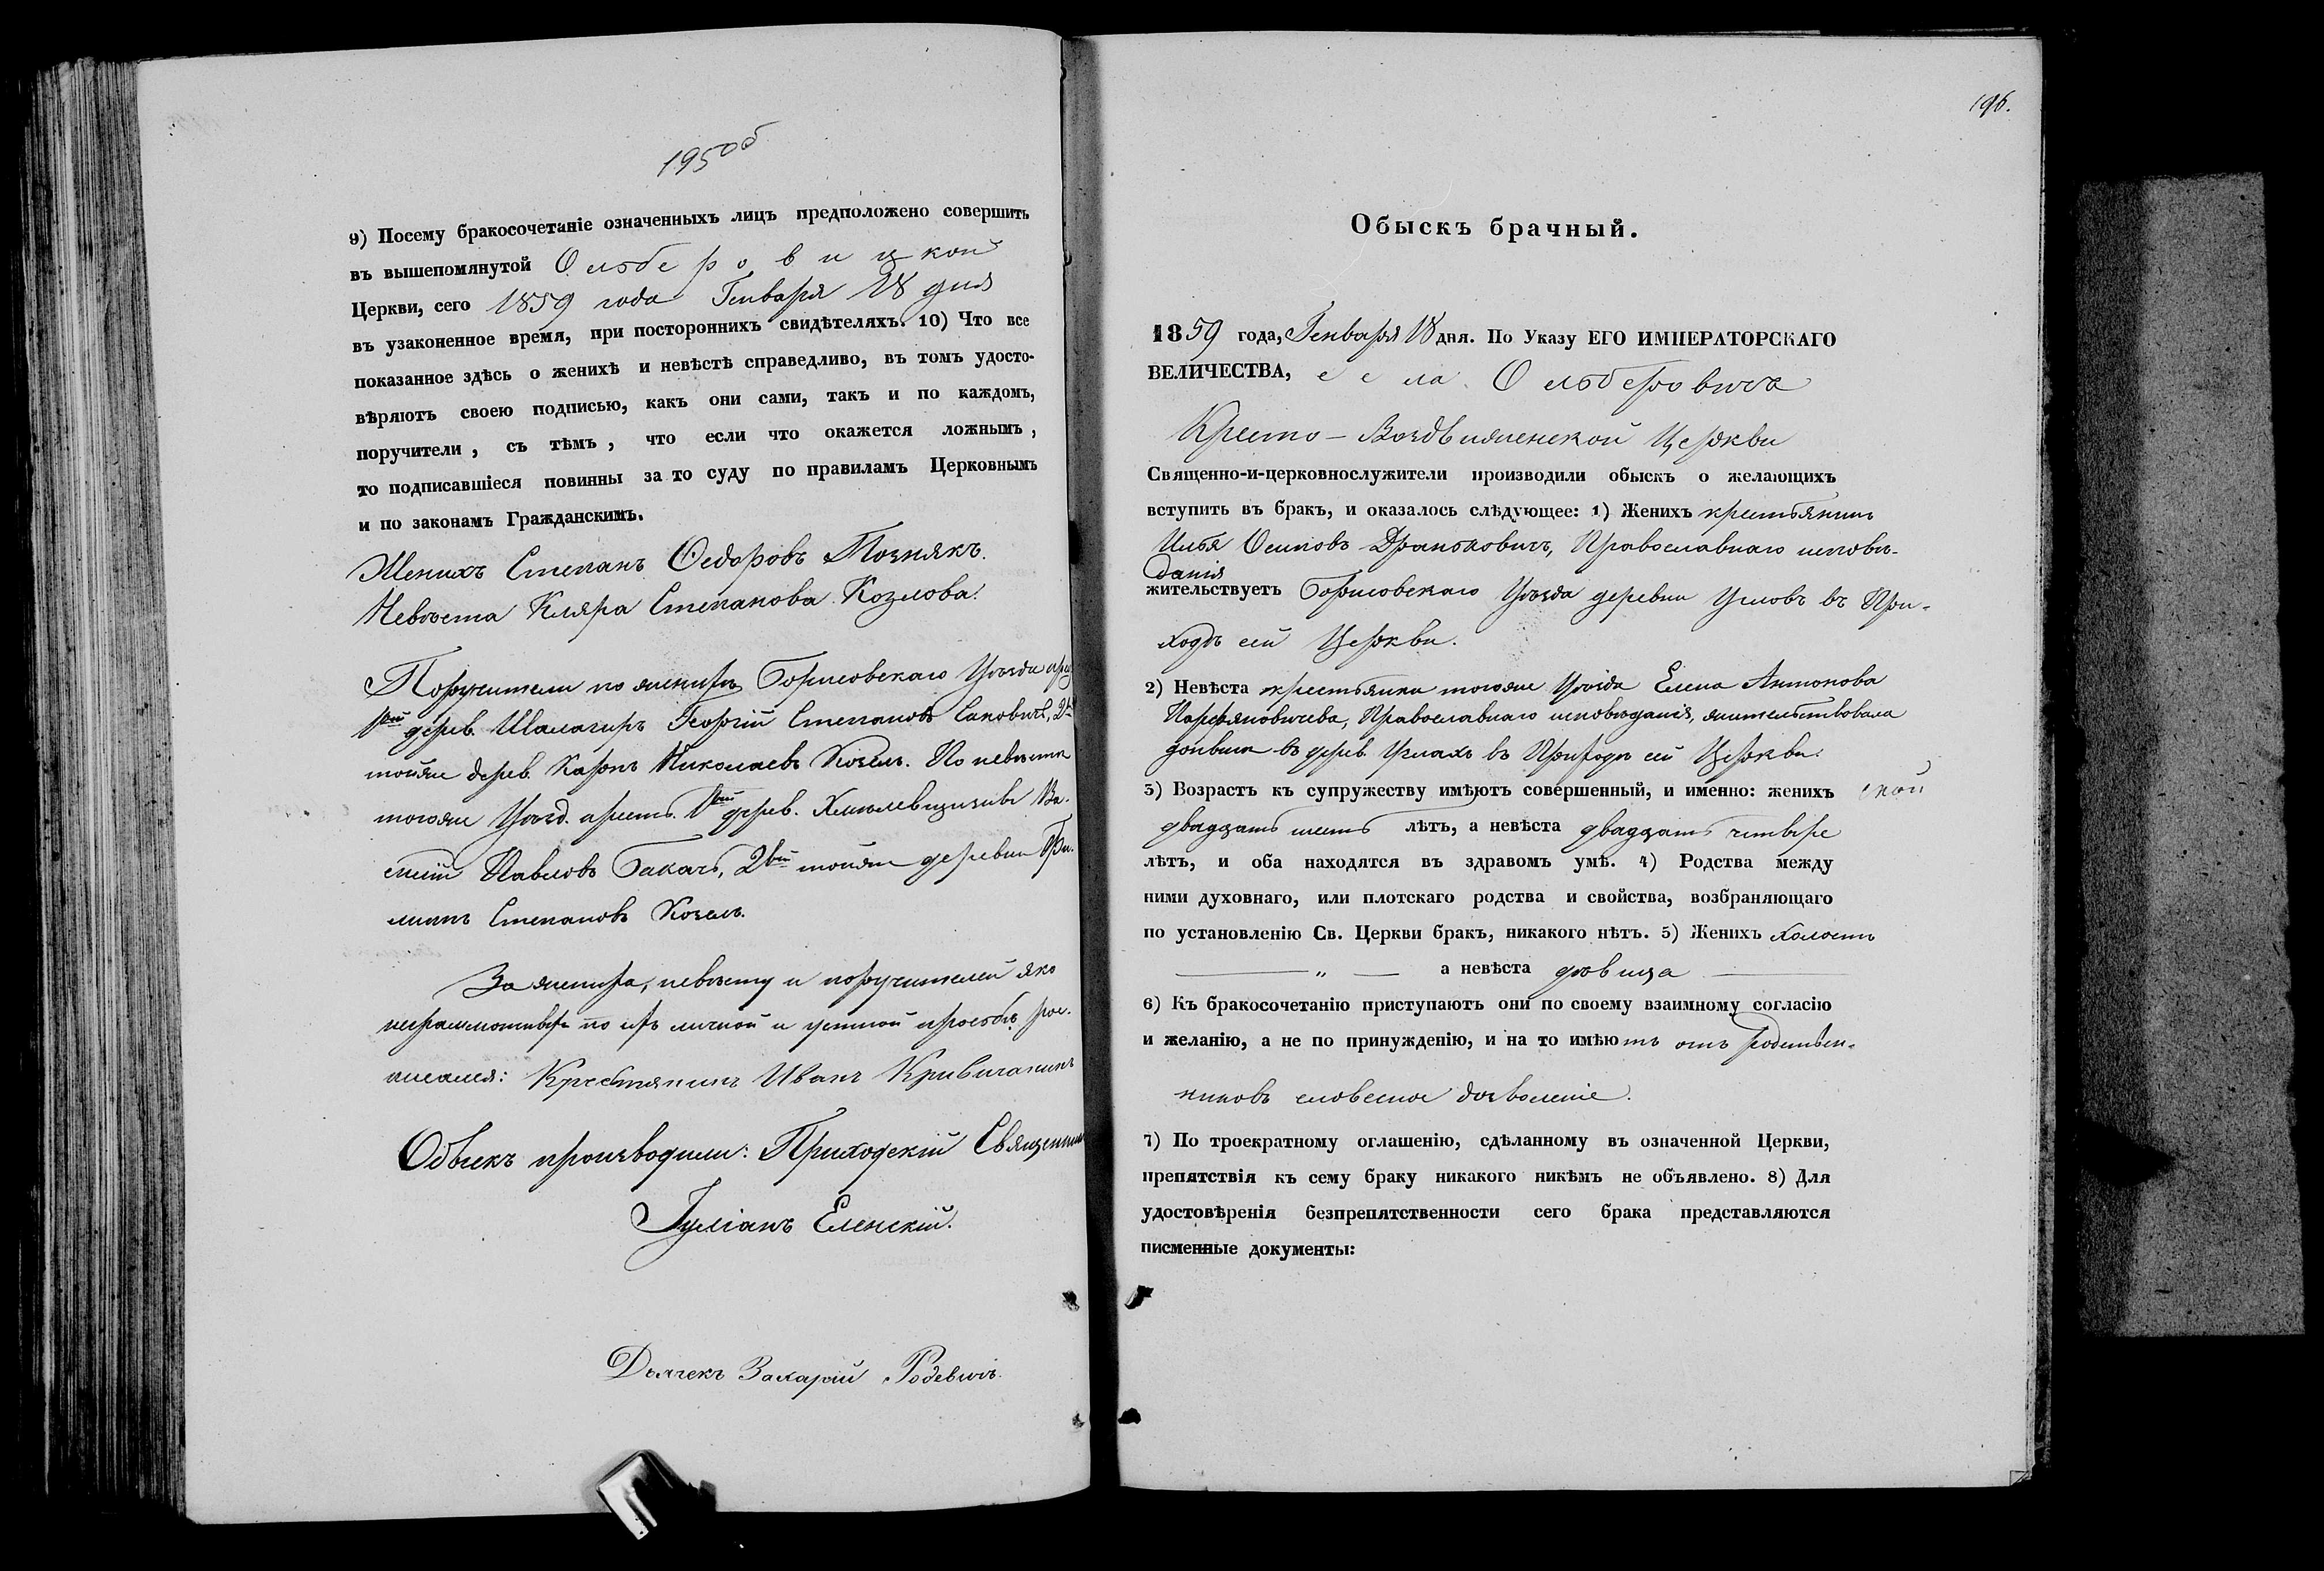 195об
9) Посему бракосочетаніе означенныхъ лицъ предположено совершить
въ вышепомянутой Ольберовицкой
Церкви, сего 1859 года Генваря 18 дня
въ узаконенное время, при постороннихъ свидѣтеляхъ. 10) Что все
показанное здѣсь о женихѣ и невѣстѣ справедливо, въ томъ удосто-
вѣряютъ своею подписью, какъ они сами, такъ и по каждомъ,
поручители, съ тѣмъ, что если что окажется ложнымъ,
то подписавшіеся повинны за то суду по правиламъ Церковнымъ
и по законамъ Гражданскимъ.
Женихъ Степанъ Ѳедоровъ Познякъ.
Невѣста Кляра Степанова Козлова.
Поручители по женихѣ Борисовскаго Уѣзда
1ый дерев. Шалагиръ Георгій Степановъ Саковичъ, 2ой
тойже дерев. Карпъ Николаевъ Козелъ. По невѣстѣ
тогоже Уѣзд. крест. 1ый дерев. Ва-
силій Павловъ Бакачъ, 2ой тойже деревни
Степановъ Козелъ.
За жениха, невѣсту и поручителей яко
неграмотныхъ по ихъ личной и устной просьбѣ рос-
писался: Крестянинъ Иванъ Кривичанинъ
Обыскъ производили: Приходскій Священникъ
Іуліанъ Еленскій.
Дьячекъ Захарій Родевичъ.
196.
Обыскъ брачный.
1859 года, Генваря 18 дня. По Указу ЕГО ИМПЕРАТОРСКАГО
ВЕЛИЧЕСТВА, села Ольберовичъ
Кресто-Воздвиженской Церкви
Священно-и-церковнослужители производили обыскъ о желающихъ
вступить въ бракъ, и оказалось слѣдующее: 1) Женихъ крестьянинъ
Илья Осиповъ Драпковичъ, Православнаго исповѣ-
данія
жительствуетъ Борисовскаго Уѣзда деревни Угловъ въ При-
ходѣ сей Церкви.
2) Невѣста крестьянка тогоже Уѣзда Елена Антонова
Парфяновичева, Православнаго исповѣданія, жительствовала
донынѣ въ дерев. Углахъ въ Приходѣ сей Церкви.
3) Возрастъ къ супружеству имѣютъ совершенный, и именно: женихъ
двадцать шесть лѣтъ, а невѣста двадцать четыре
лѣтъ, и оба находятся въ здравомъ умѣ. 4) Родства между
ними духовнаго, или плотскаго родства и свойства, возбраняющаго
по установленію Св. Церкви бракъ, никакого нѣтъ. 5) Женихъ холостъ
— „ — а невѣста дѣвица
6) Къ бракосочетанію приступаютъ они по своему взаимному согласію
и желанію, а не по принужденію, и на то имѣютъ отъ родствен-
никовъ словесное дозволеніе.
7) По троекратному оглашенію, сдѣланному въ означенной Церкви,
препятствія къ сему браку никакого никѣмъ не объявлено. 8) Для
удостовѣренія безпрепятственности сего брака представляются
писменные документы: